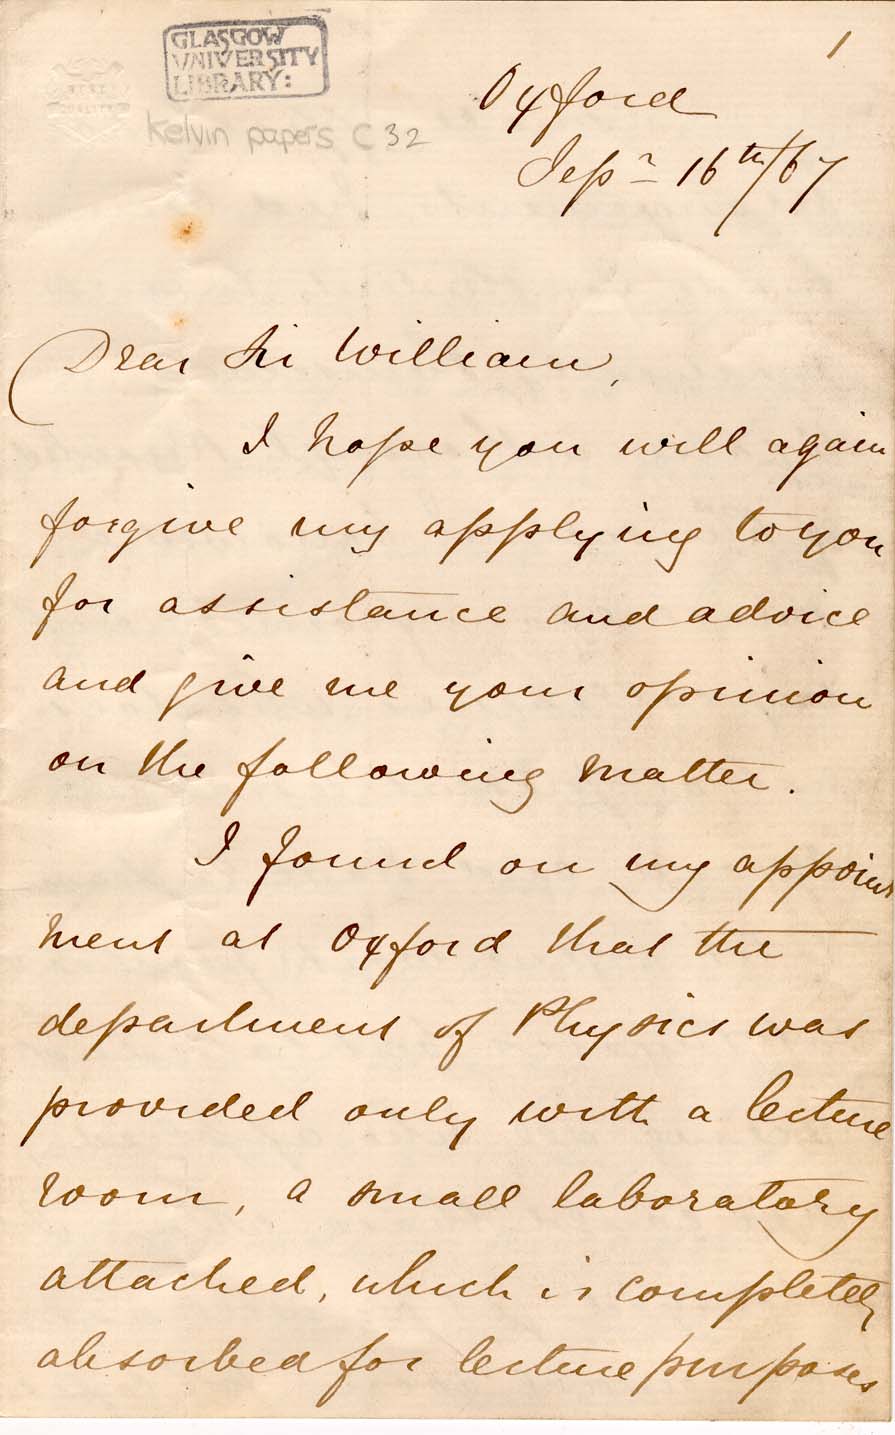 GLASGOW
UNIVERSITY
LIBRARY:
Kelvin papers C 32
1
Oxford
Sepr 16th/67
Dear Sir William,
I hope you will again
forgive my applying to you
for assistance and advice
and give me your opinion
on the following matter.
I found on my appoint
ment at Oxford that the
department of Physics was
provided only with a lecture
room, a small laboratory
attached, which is completely
absorbed for lecture purposes